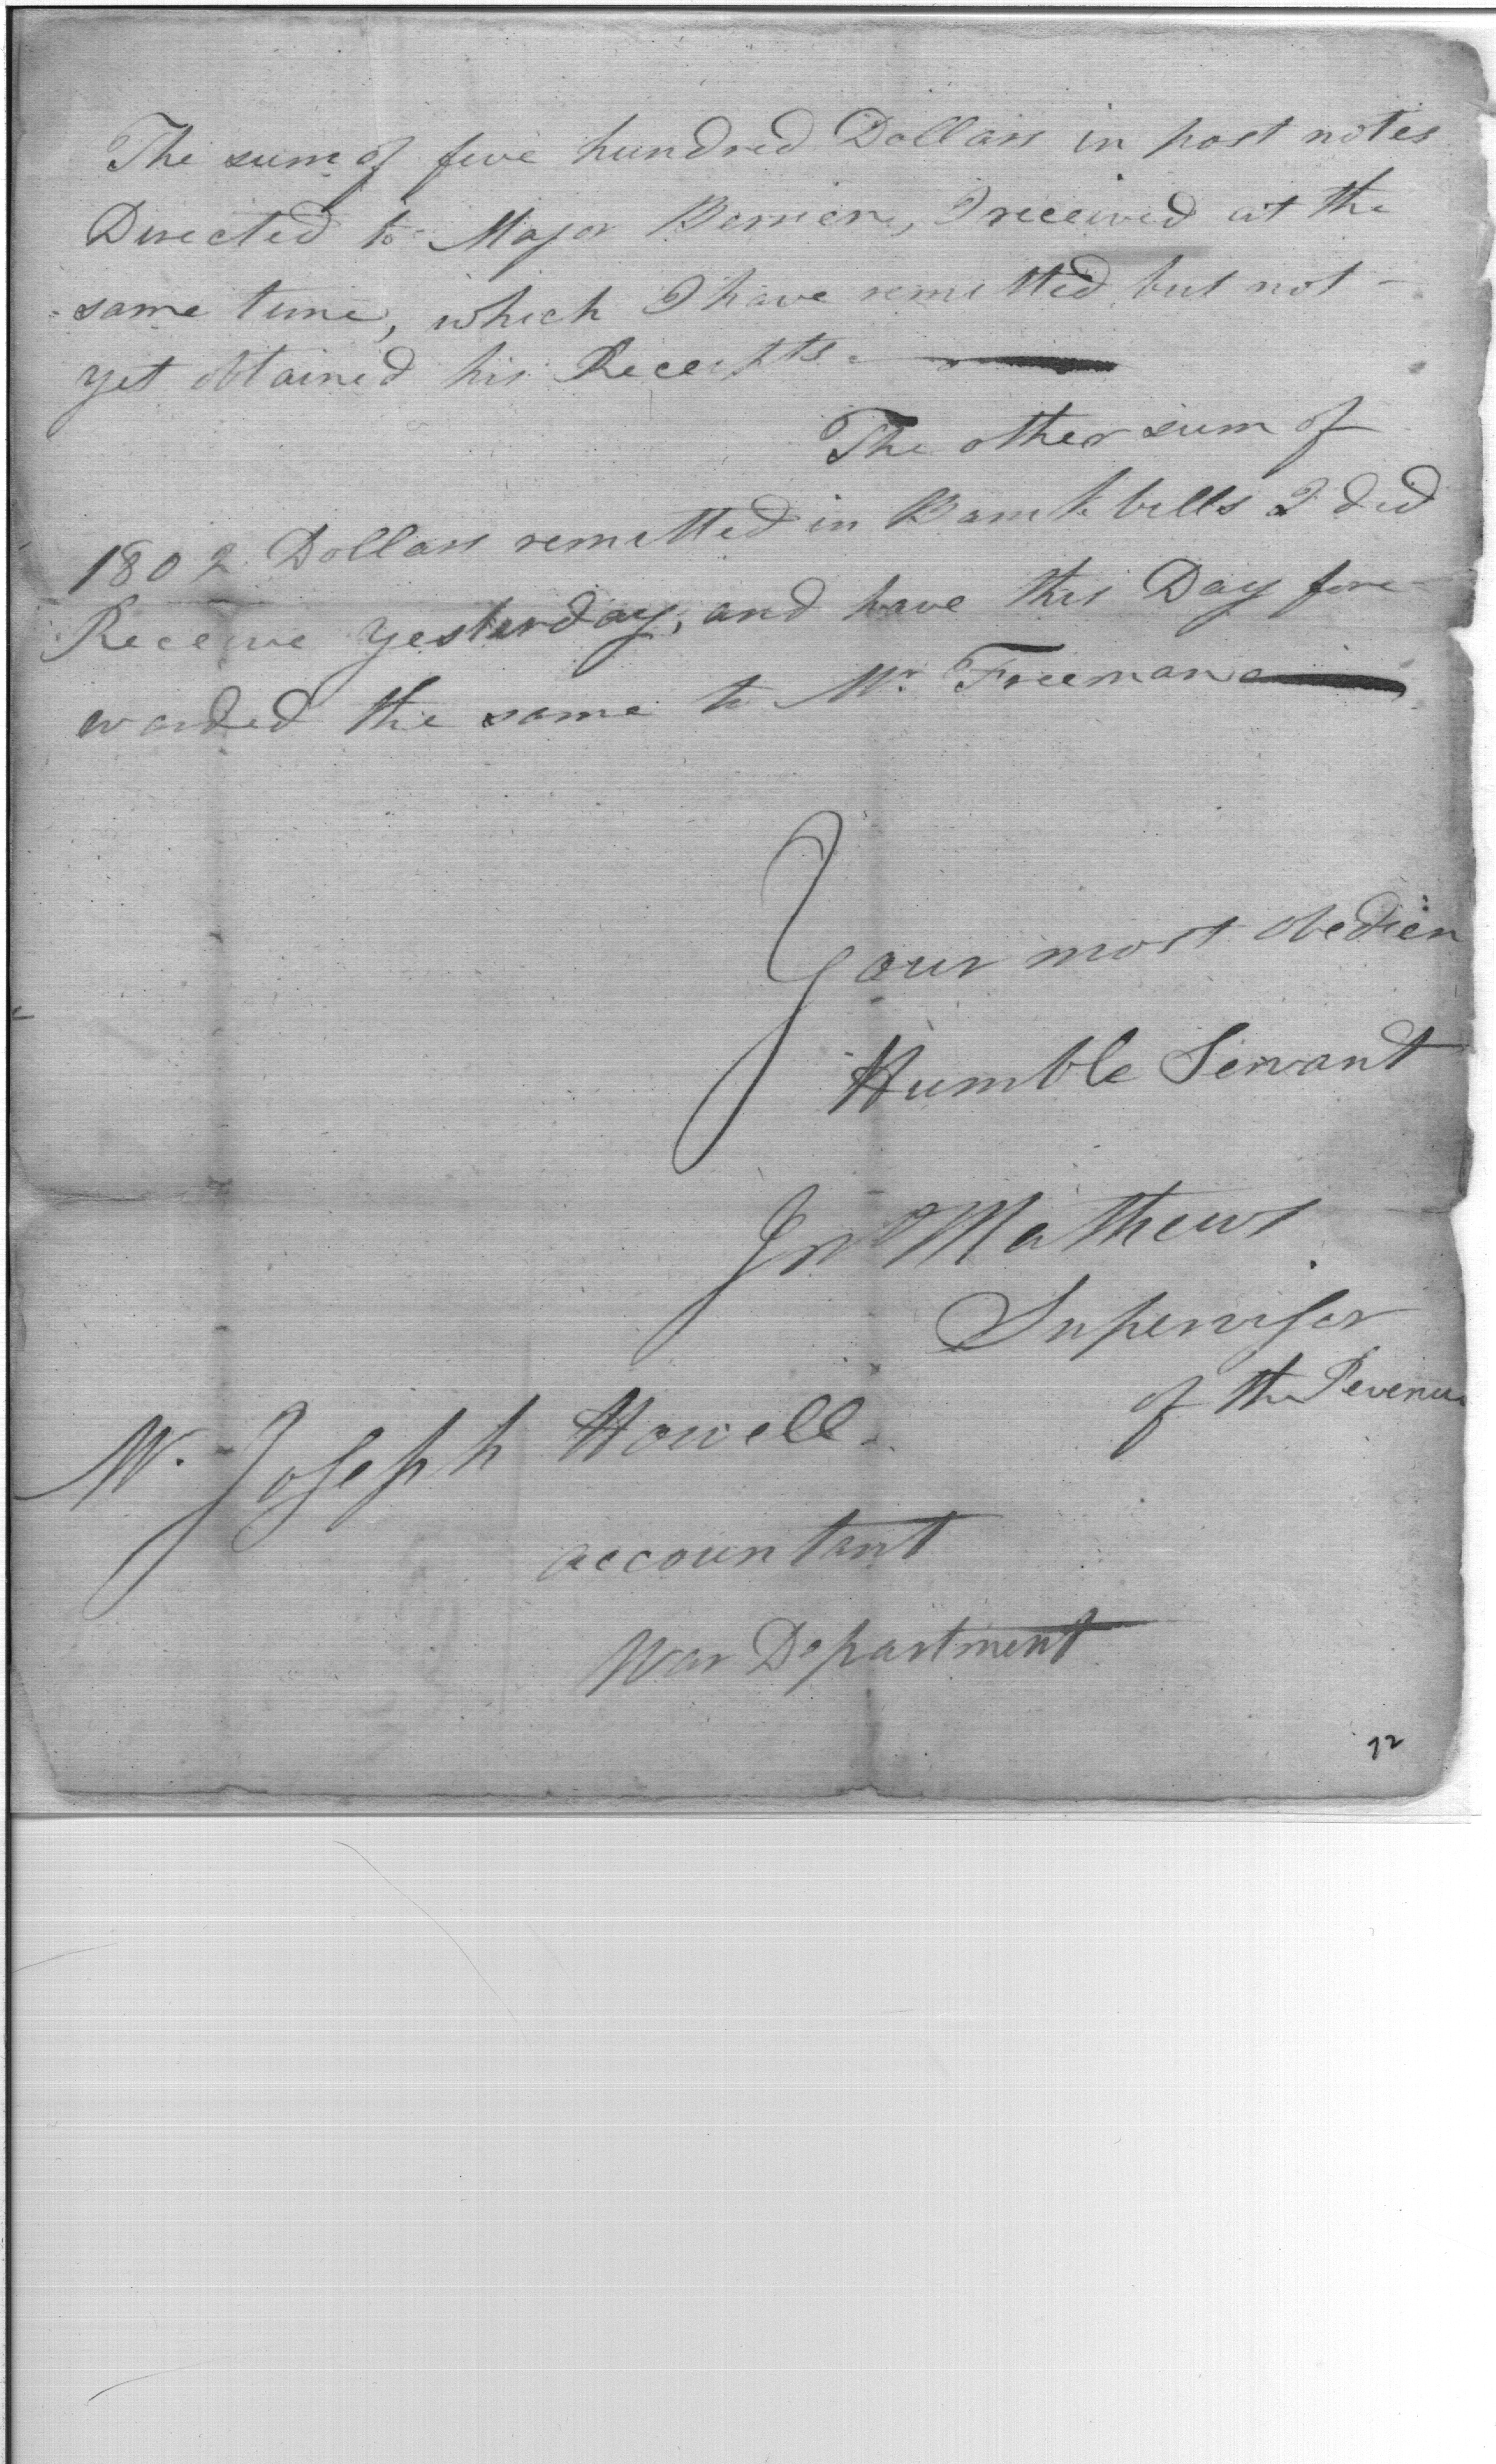 The sum of five hundred Dollars in post notes
Directed to Major Berrien, I received at the
same time, which I have remitted but not -
yet obtained his Receipts.
The other sum of
1802 Dollars remitted in Bank bills I did
Receive yesterday, and have this Day for-
warded the same to Mr. Freeman
Your most obedien
Humble Servant
Jno Mathews
Supervisor
of the Revenue
Mr. Joseph Howell
accountant
War Department
72